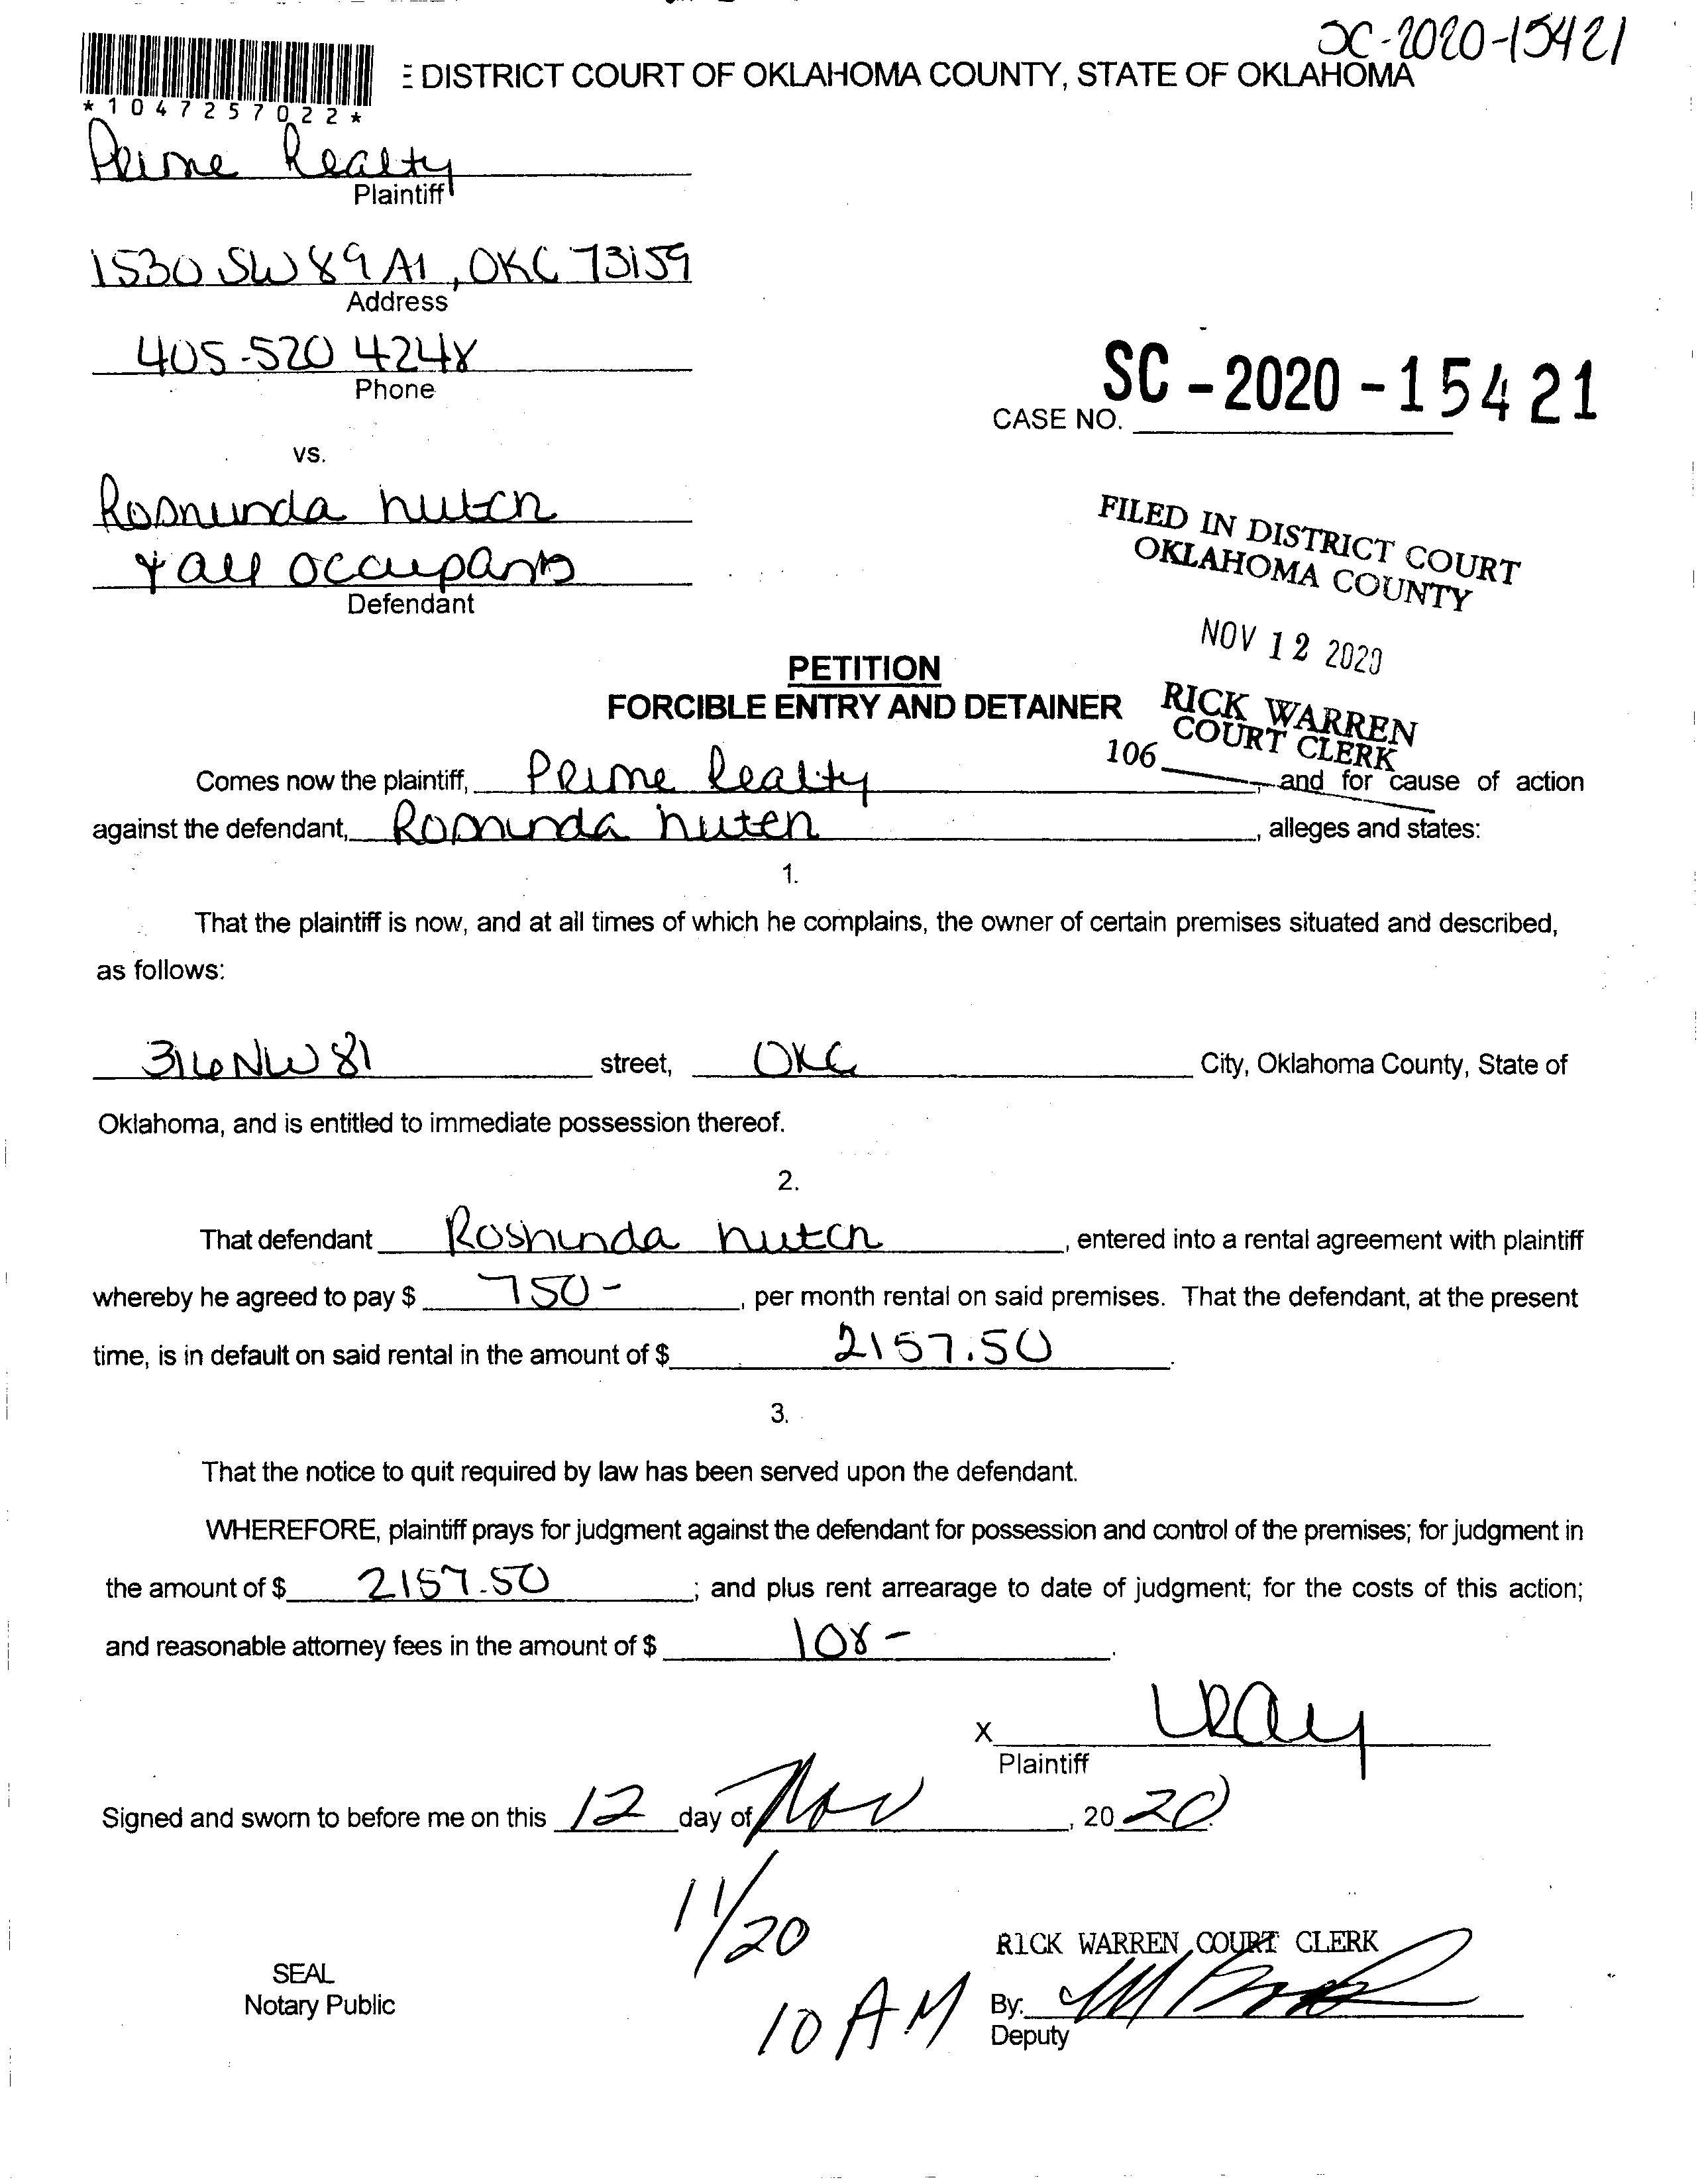 SC-2020-15421
E DISTRICT COURT OF OKLAHOMA COUNTY, STATE OF OKLAHOMA
*1047257022*
Prime Realty
Plaintiff
1530 SW 89 A1, OKC 73159
Address
405-520 4248
Phone
SC-2020-15421
CASE NO.
vs.
Roshunda hutch
& all occupants
Defendant
FILED IN DISTRICT COURT
OKLAHOMA COUNTY
NOV 12 2020
RICK WARREN
COURT CLERK
106
PETITION
FORCIBLE ENTRY AND DETAINER
Comes now the plaintiff, Prime Realty, and for cause of action
against the defendant, Roshunda hutch, alleges and states:
1.
That the plaintiff is now, and at all times of which he complains, the owner of certain premises situated and described,
as follows:
316 NW 81 street, OKC City, Oklahoma County, State of
Oklahoma, and is entitled to immediate possession thereof.
2.
That defendant Roshunda hutch, entered into a rental agreement with plaintiff
whereby he agreed to pay $ 750-, per month rental on said premises. That the defendant, at the present
time, is in default on said rental in the amount of $ 2157.50.
3.
That the notice to quit required by law has been served upon the defendant.
WHEREFORE, plaintiff prays for judgment against the defendant for possession and control of the premises; for judgment in
the amount of $ 2157.50; and plus rent arrearage to date of judgment; for the costs of this action;
and reasonable attorney fees in the amount of $ 108-.
X
Plaintiff
Signed and sworn to before me on this 12 day of Nov, 20 20.
11/20
10 AM
SEAL
Notary Public
RICK WARREN COURT CLERK
By:
Deputy